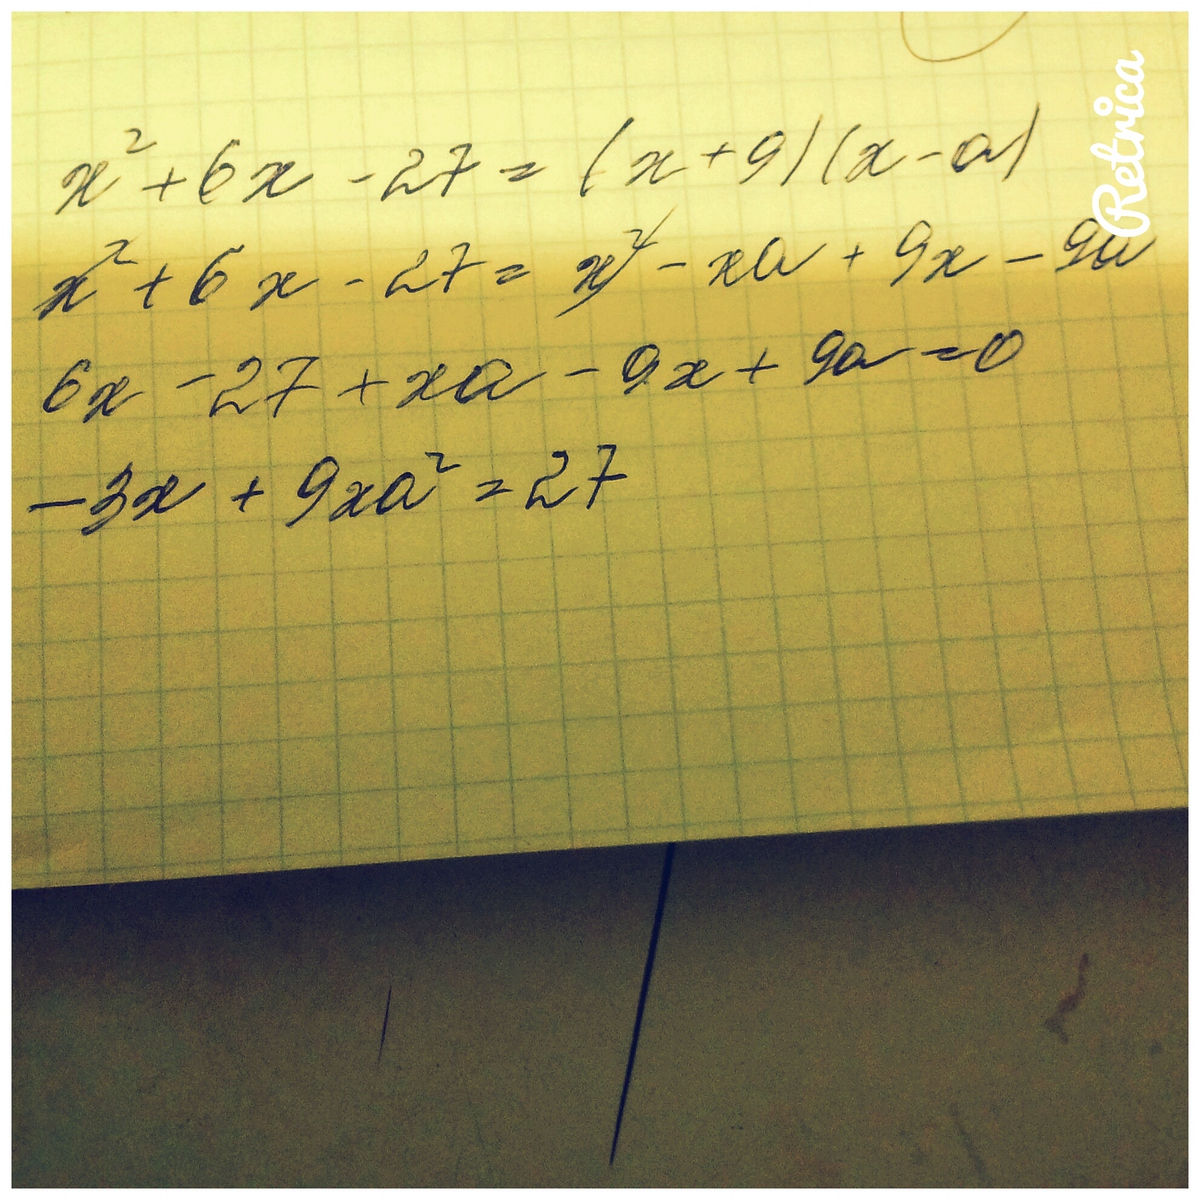 x² + 6x - 27 = (x + 9)(x - a)
x² + 6x - 27 = x² - xa + 9x - 9a
6x - 27 + xa - 9x + 9a = 0
-3x + 9xa² = 27
Retrica